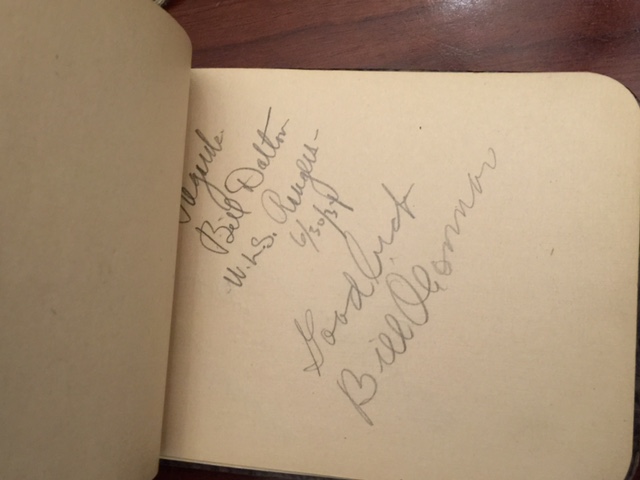 Bill Dalton
W.L.S. Rangers-
6/30/34
Good Luck
Bill O'Connor